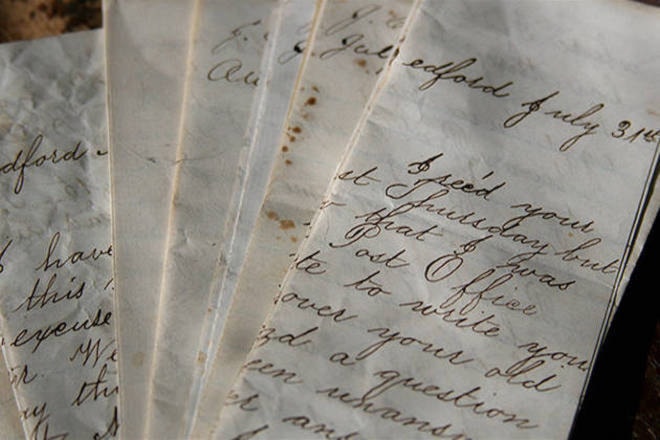 dford
have
this
excuse
r. We
ay th
J.
Au
J. Jul
edford July 31st
I rec'd your
st Thursday but
that I was
Post Office
te to write you
over your old
nd a question
een unansw
er an